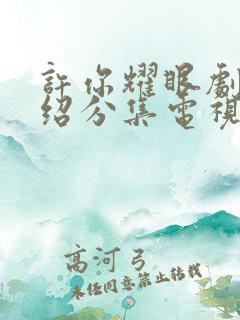 許你耀眼劇
紹分集電視
高河弓
未任同意禁止转载